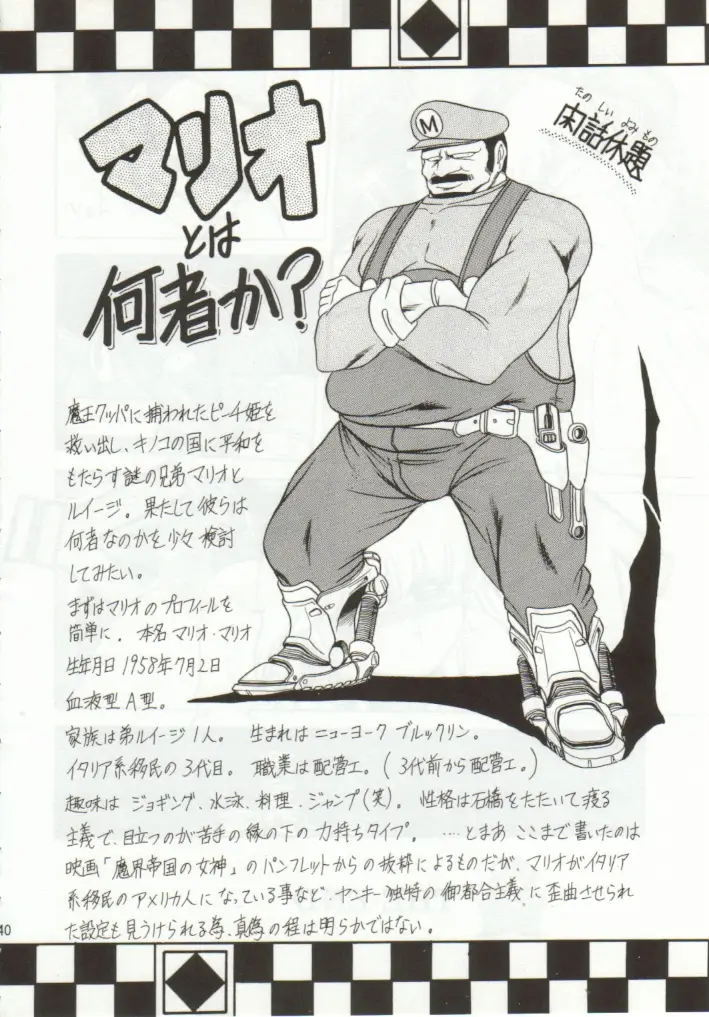 マリオ
とは
何者か?
たのしいよみもの
閑話休題
M
魔王クッパに捕われたピーチ姫を
救い出し、キノコの国に平和を
もたらす謎の兄弟マリオと
ルイージ。果たして彼らは
何者なのかを少々検討
してみたい。
まずはマリオのプロフィールを
簡単に。本名マリオ・マリオ
生年月日1958年7月2日
血液型A型。
家族は弟ルイージ1人。 生まれはニューヨーク ブルックリン。
イタリア系移民の3代目。 職業は配管工。(3代前から配管工。)
趣味は ジョギング、水泳、料理、ジャンプ(笑)。 性格は石橋をたたいて寝る
主義で、目立つのが苦手の縁の下の力持ちタイプ。 ‥‥とまあ ここまで書いたのは
映画「魔界帝国の女神」のパンフレットからの抜粋によるものだが、マリオがイタリア
系移民のアメリカ人になっている事など、ヤンキー独特の御都合主義に歪曲させられ
た設定も見うけられる為、真偽の程は明らかではない。
40